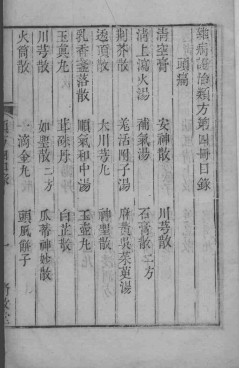 雜病證治類方第四冊目錄
頭痛
清空膏 安神散 川芎散
清上瀉火湯 補氣湯 石膏散二方
荊芥散 羌活附子湯 麻黃吳茱萸湯
透頂散 大川芎丸 神聖散
乳香盞落散 順氣和中湯 玉壺丸
玉真丸 茸硃丹 白芷散
川芎散 如聖散二方 瓜蒂神妙散
火筒散 一滴金丸 頭風餅子